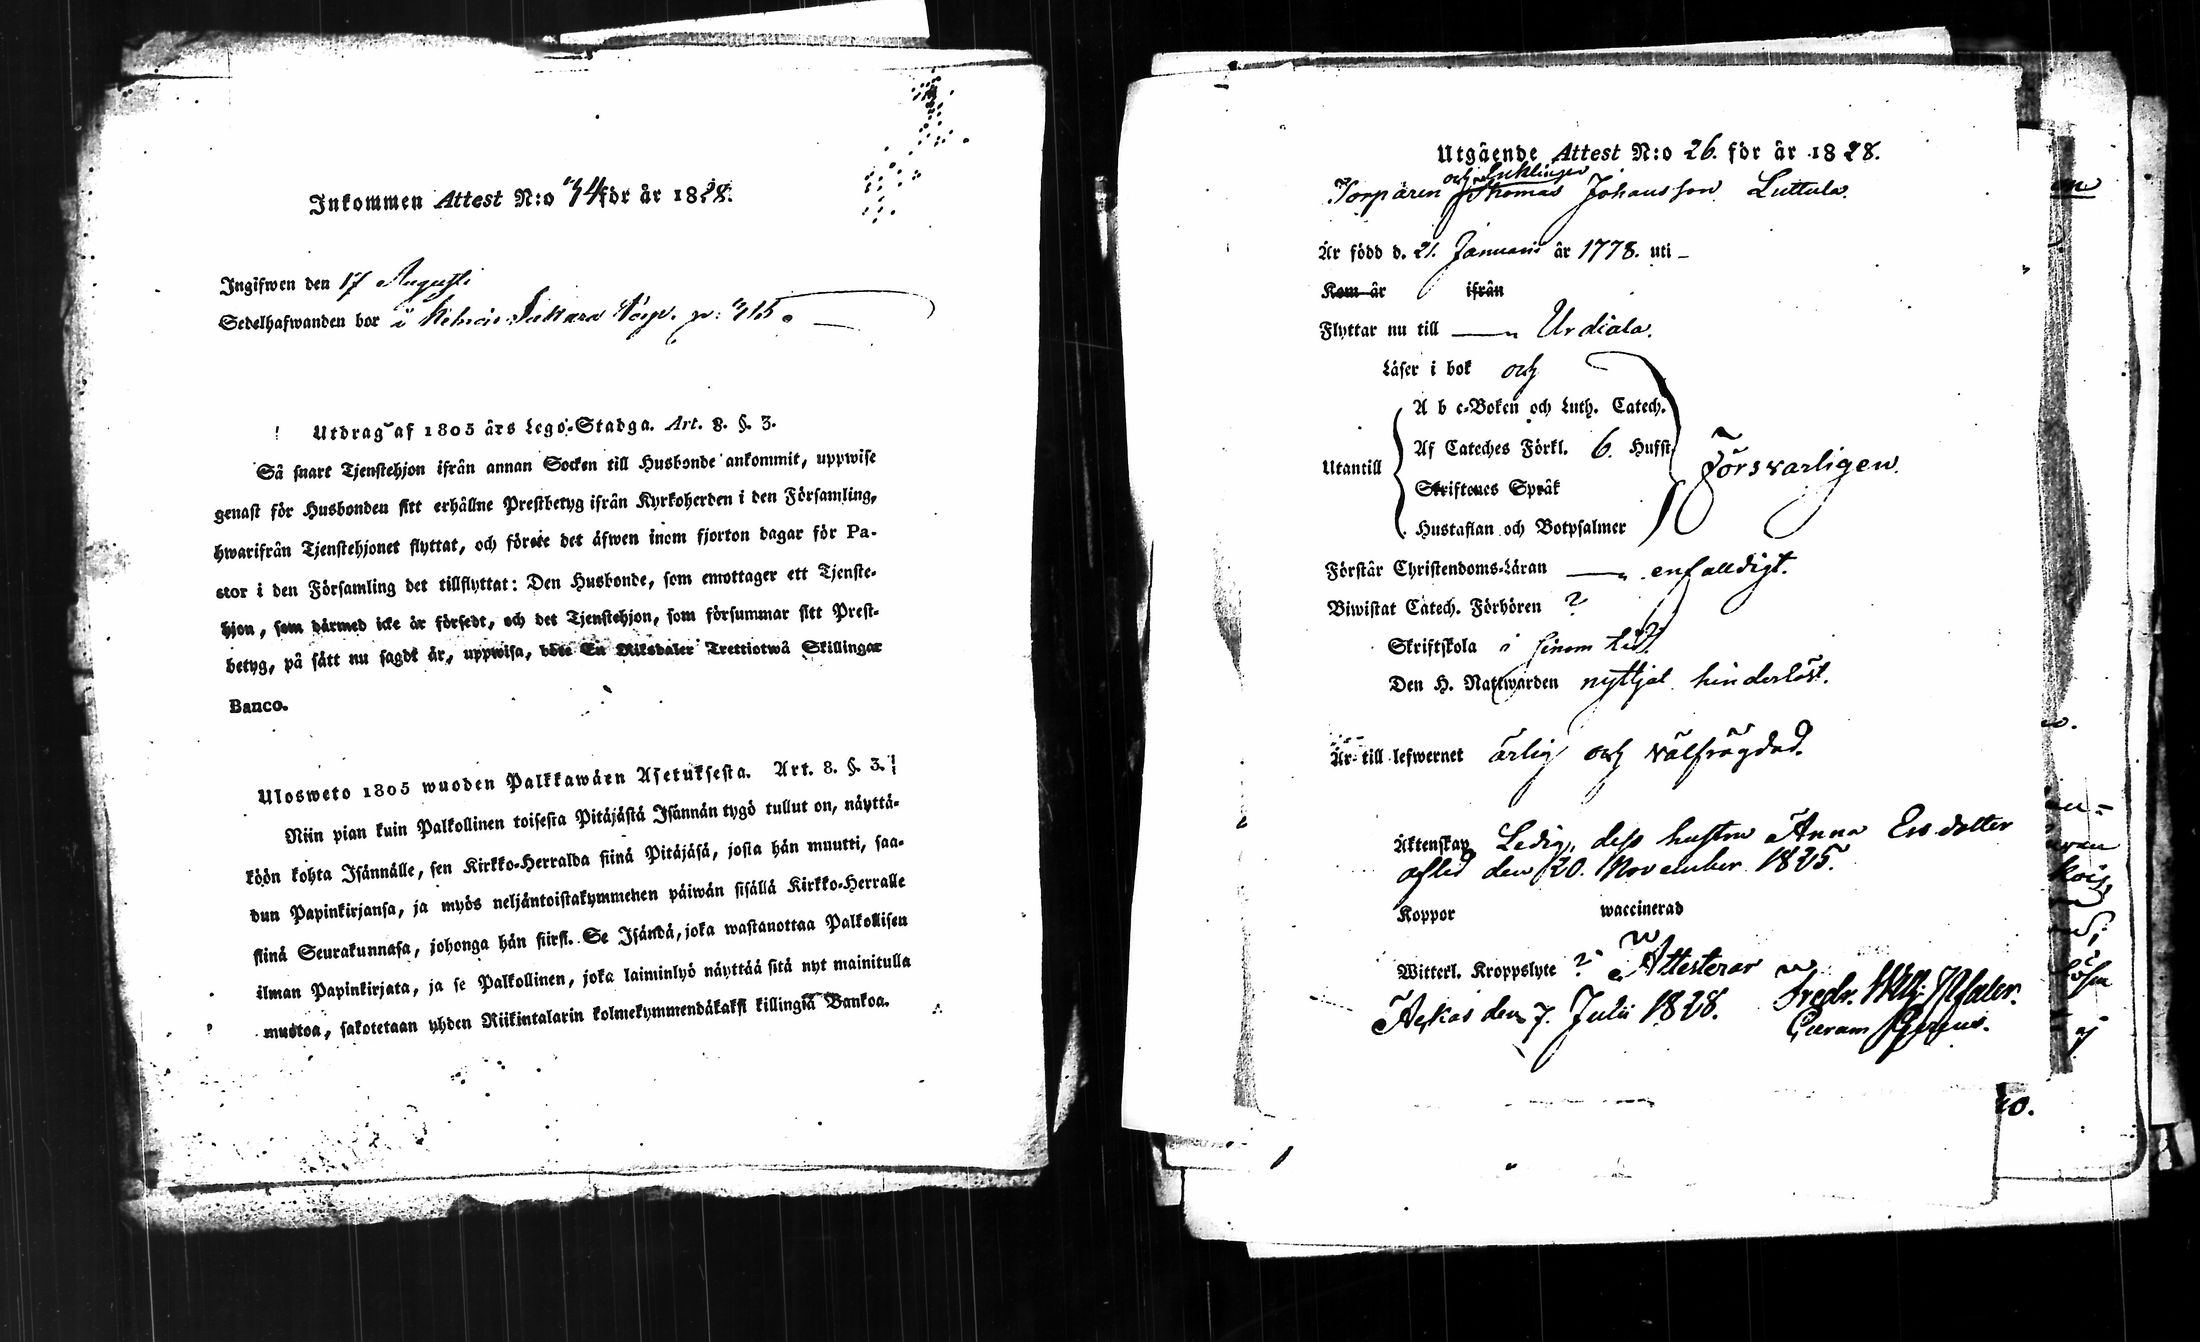 Inkommen Attest N:o 34 för år 1828.
Ingifwen den 17 Augusti
Sedelhafwanden bor i
Utdrag af 1805 års Lego-Stadga. Art. 8. §. 3.
Så snart Tjenstehjon ifrån annan Socken till Husbonde ankommit, uppwise
genast för Husbonden sitt erhållne Prestbetyg ifrån Kyrkoherden i den Församling,
hwarifrån Tjenstehjonet flyttat, och förete det äfwen inom fjorton dagar för Pa-
stor i den Församling det tillflyttat: Den Husbonde, som emottager ett Tjenste-
hjon, som därmed icke är försedt, och det Tjenstehjon, som försummar sitt Prest-
betyg, på sätt nu sagdt är, uppwisa, böte En Riksdaler Trettiotwå Skillingar
Banco.
Ulosweto 1805 wuoden Palkkawäen Asetuksesta. Art. 8. §. 3.
Niin pian kuin Palkollinen toisesta Pitäjästä Isännän tygö tullut on, näyttä-
köön kohta Isännälle, sen Kirkko-Herralda siinä Pitäjäsä, josta hän muutti, saa-
dun Papinkirjansa, ja myös neljäntoistakymmenen päiwän sisällä Kirkko-Herralle
siinä Seurakunnasa, johonga hän siirsi. Se Isändä, joka wastanottaa Palkollisen
ilman Papinkirjata, ja se Palkollinen, joka laiminlyö näyttää sitä nyt mainitulla
muotoa, sakotetaan yhden Riikintalarin kolmekymmendäkaksi killingiä Bankoa.
Utgående Attest N:o 26. för år 1828.
och Enklingen
Torparen Thomas Johansson Luttula.
Är född d. 21. Januarii år 1778. uti –
Kom år ifrån
Flyttar nu till Urdiala.
Läser i bok och
A b c-Boken och Luth. Catech.
Af Cateches Förkl. 6. Hufst.
Utantill Försvarligen.
Skriftenes Språk
Hustaflan och Botpsalmer
Förstår Christendoms-Läran enfalldigt.
Biwistat Catech. Förhören ?
Skriftskola i sinom tid.
Den H. Nattwarden nyttjat hinderlöst.
Är till lefwernet ärlig och välfrägdad.
Äktenskap Ledig, dess hustru Anna Ersdotter
afled den 20. November 1825.
Koppor waccinerad
Witterl. Kroppslyte ? Attesterar
Akas den 7. Julii 1828. Fredr. Wilh. Pfaler.